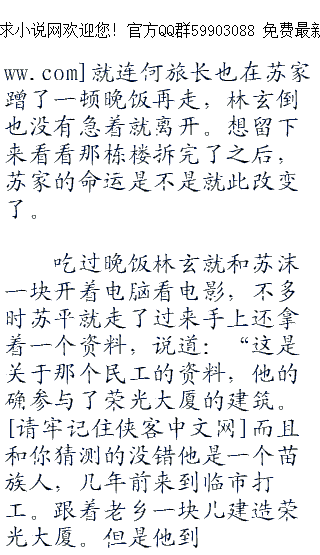 求小说网欢迎您！官方QQ群59903088 免费最新
ww.com]就连何旅长也在苏家
蹭了一顿晚饭再走，林玄倒
也没有急着就离开。想留下
来看看那栋楼拆完了之后，
苏家的命运是不是就此改变
了。
吃过晚饭林玄就和苏沫
一块开着电脑看电影，不多
时苏平就走了过来手上还拿
着一个资料，说道：“这是
关于那个民工的资料，他的
确参与了荣光大厦的建筑。
[请牢记住侠客中文网]而且
和你猜测的没错他是一个苗
族人，几年前来到临市打
工。跟着老乡一块儿建造荣
光大厦。但是他到